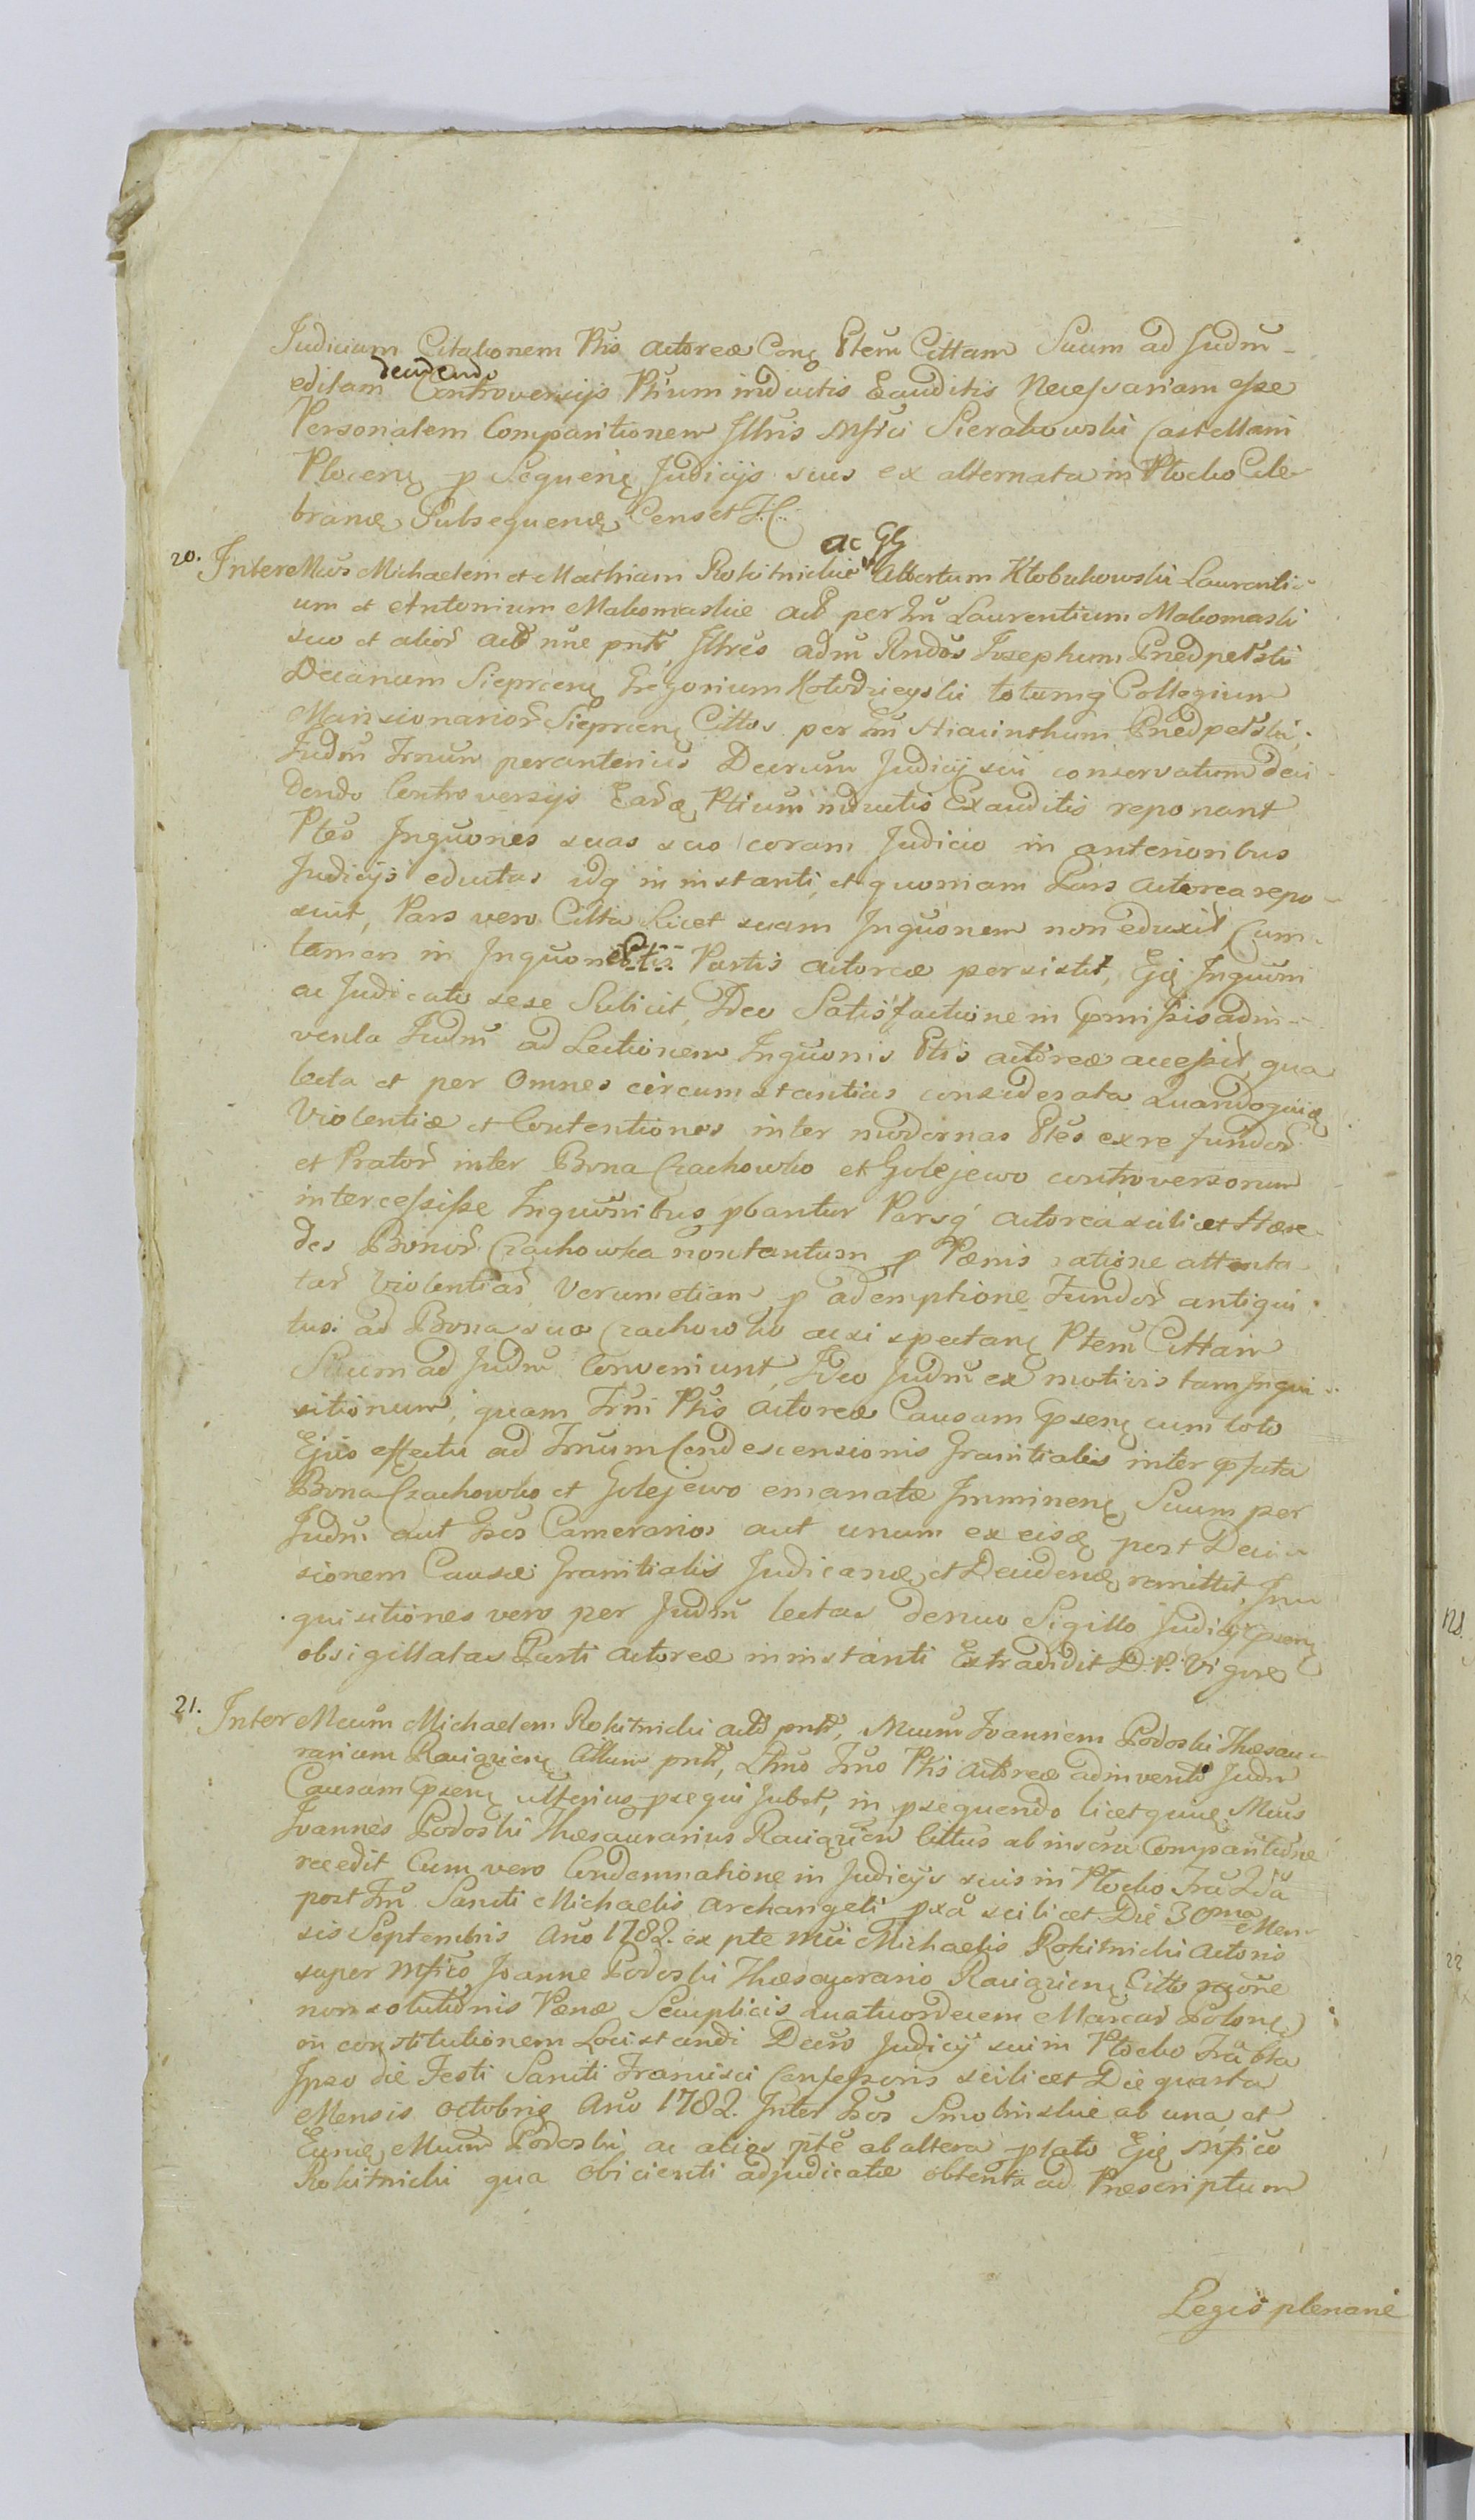 Judicium Citationem Ptis Actoreæ Conę Ptem Cittam Suum ad Judm̃
decidendo
editam Controversijs Ptium inductis Exauditis Necessariam esse
Personalem Comparitionem Illris Mfici Sierakowski Castellani
Plocenę p Sequenę Judicijs suis ex alternata in Plocko Cele-
branę Subsequenę Censet J.C.
ac Gfl
20. Inter Mcos Michaelem et Mathiam Rokitnickie Albertum Kłobukowski Laurenti-
um et Antonium Makomaskie act per Gn Laurentium Makomaski
suo et alior act nne pntr, Illres adm Rndos Josephum Przedpełski
Decanum Sieprcenę Gregorium Kołodzieyski totumq Collegium
Mansionarior Sieprcenę Cittos per Gn Hiacinthum Przedpełski,
Judm̃ Trnum per anterius Decrum Judicij sui conservatum deci-
dendo Controversijs Earę Ptium inductis Exauditis reponant
Ptes Inquones suas suo coram Judicio in anterioribus
Judicijs eductas idq in instanti, et quoniam Pars Actorea repo-
suit, Pars vero Citta Licet suam Inquonem non eduxit Cum
tamen in Inquone Ptis Partis Actoreæ persistit, Eję Inquoni
ac Judicato sese Subicit, Ideo Satisfactione in Pmissis adin-
venta Judm̃ ad Lectionem Inquonis Ptis actoreæ accessit, qua
lecta et per Omnes circumstantias considerata Quandoquię
Violentiæ et Contentiones inter modernas Ptes ex re fundor
et Prator inter Bona Czachowko et Golejewo controversorum
intercessisse Inquonibus pbantur Parsq Actorea scilicet Hære-
des Bonor Czachowka non tantum p Pœnis ratione attenta-
tar Violentiar Verum etiam p ademptione Fundor antiqui-
tus ad Bona sua Czachowko acsi spectanę Ptem Cittam
Suum ad Judm̃ Conveniunt, Ideo Judm̃ ex motivis tam Inqui-
sitionum, quam Trni Ptis Actoreæ Causam Psenę cum toto
Ejus effectu ad Trnum Condescensionis Granitialis inter Pfata
Bona Czachowko et Golejewo emanatæ Imminenę Suum per
Judm̃ aut Gsos Camerarios aut unum ex eisę post Deci-
sionem Causæ Granitialis Judicanę et Decidenę remittit, Inn
quisitiones vero per Judm̃ lectas denuo Sigillo Judicij Psenę
obsigillatas Parti Actoreæ in instanti Extradidit D. P. Vigore
21. Inter Mcum Michaelem Rokitnicki act pntr, Mcum Joannem Podoski Thesau-
rarium Raciązenę Cittum pntr, Ltmo Trno Ptis Actoreæ adinvento Judm̃
Causam Psenę ulterius psequi Jubet, in psequendo licet quię Mcus
Joannes Podoski Thæsaurarius Raciązen Cittus ab inscru Comparitione
recedit Cum vero Condemnatione in Judicijs suis in Plocko Fra 2da
post Fm Sancti Michaelis Archangeli pxa scilicet Die 30ma Men-
sis Septembris Ano 1782. ex pte Mci Michaelis Rokitnicki Actoris
super Mfico Joanne Podoski Thæsaurario Raciązenę Citto raone
non solutionis Pœnæ Semplicis quatuordecem Marcar Polonę
in constitutionem Loci standi Decro Judicij sui in Plocko Fra 6ta
Ipso die Festi Sancti Francisci Confessoris scilicet Die quarta
Mensis octobris Ano 1782. Inter Gsos Smolinskie ab una et
Eunę Mcum Podoski ac alios pte ab altera plato Eję Mfico
Rokitnicki qua obicienti adjudicatæ obtenta ad Præscriptum
Legis plenane